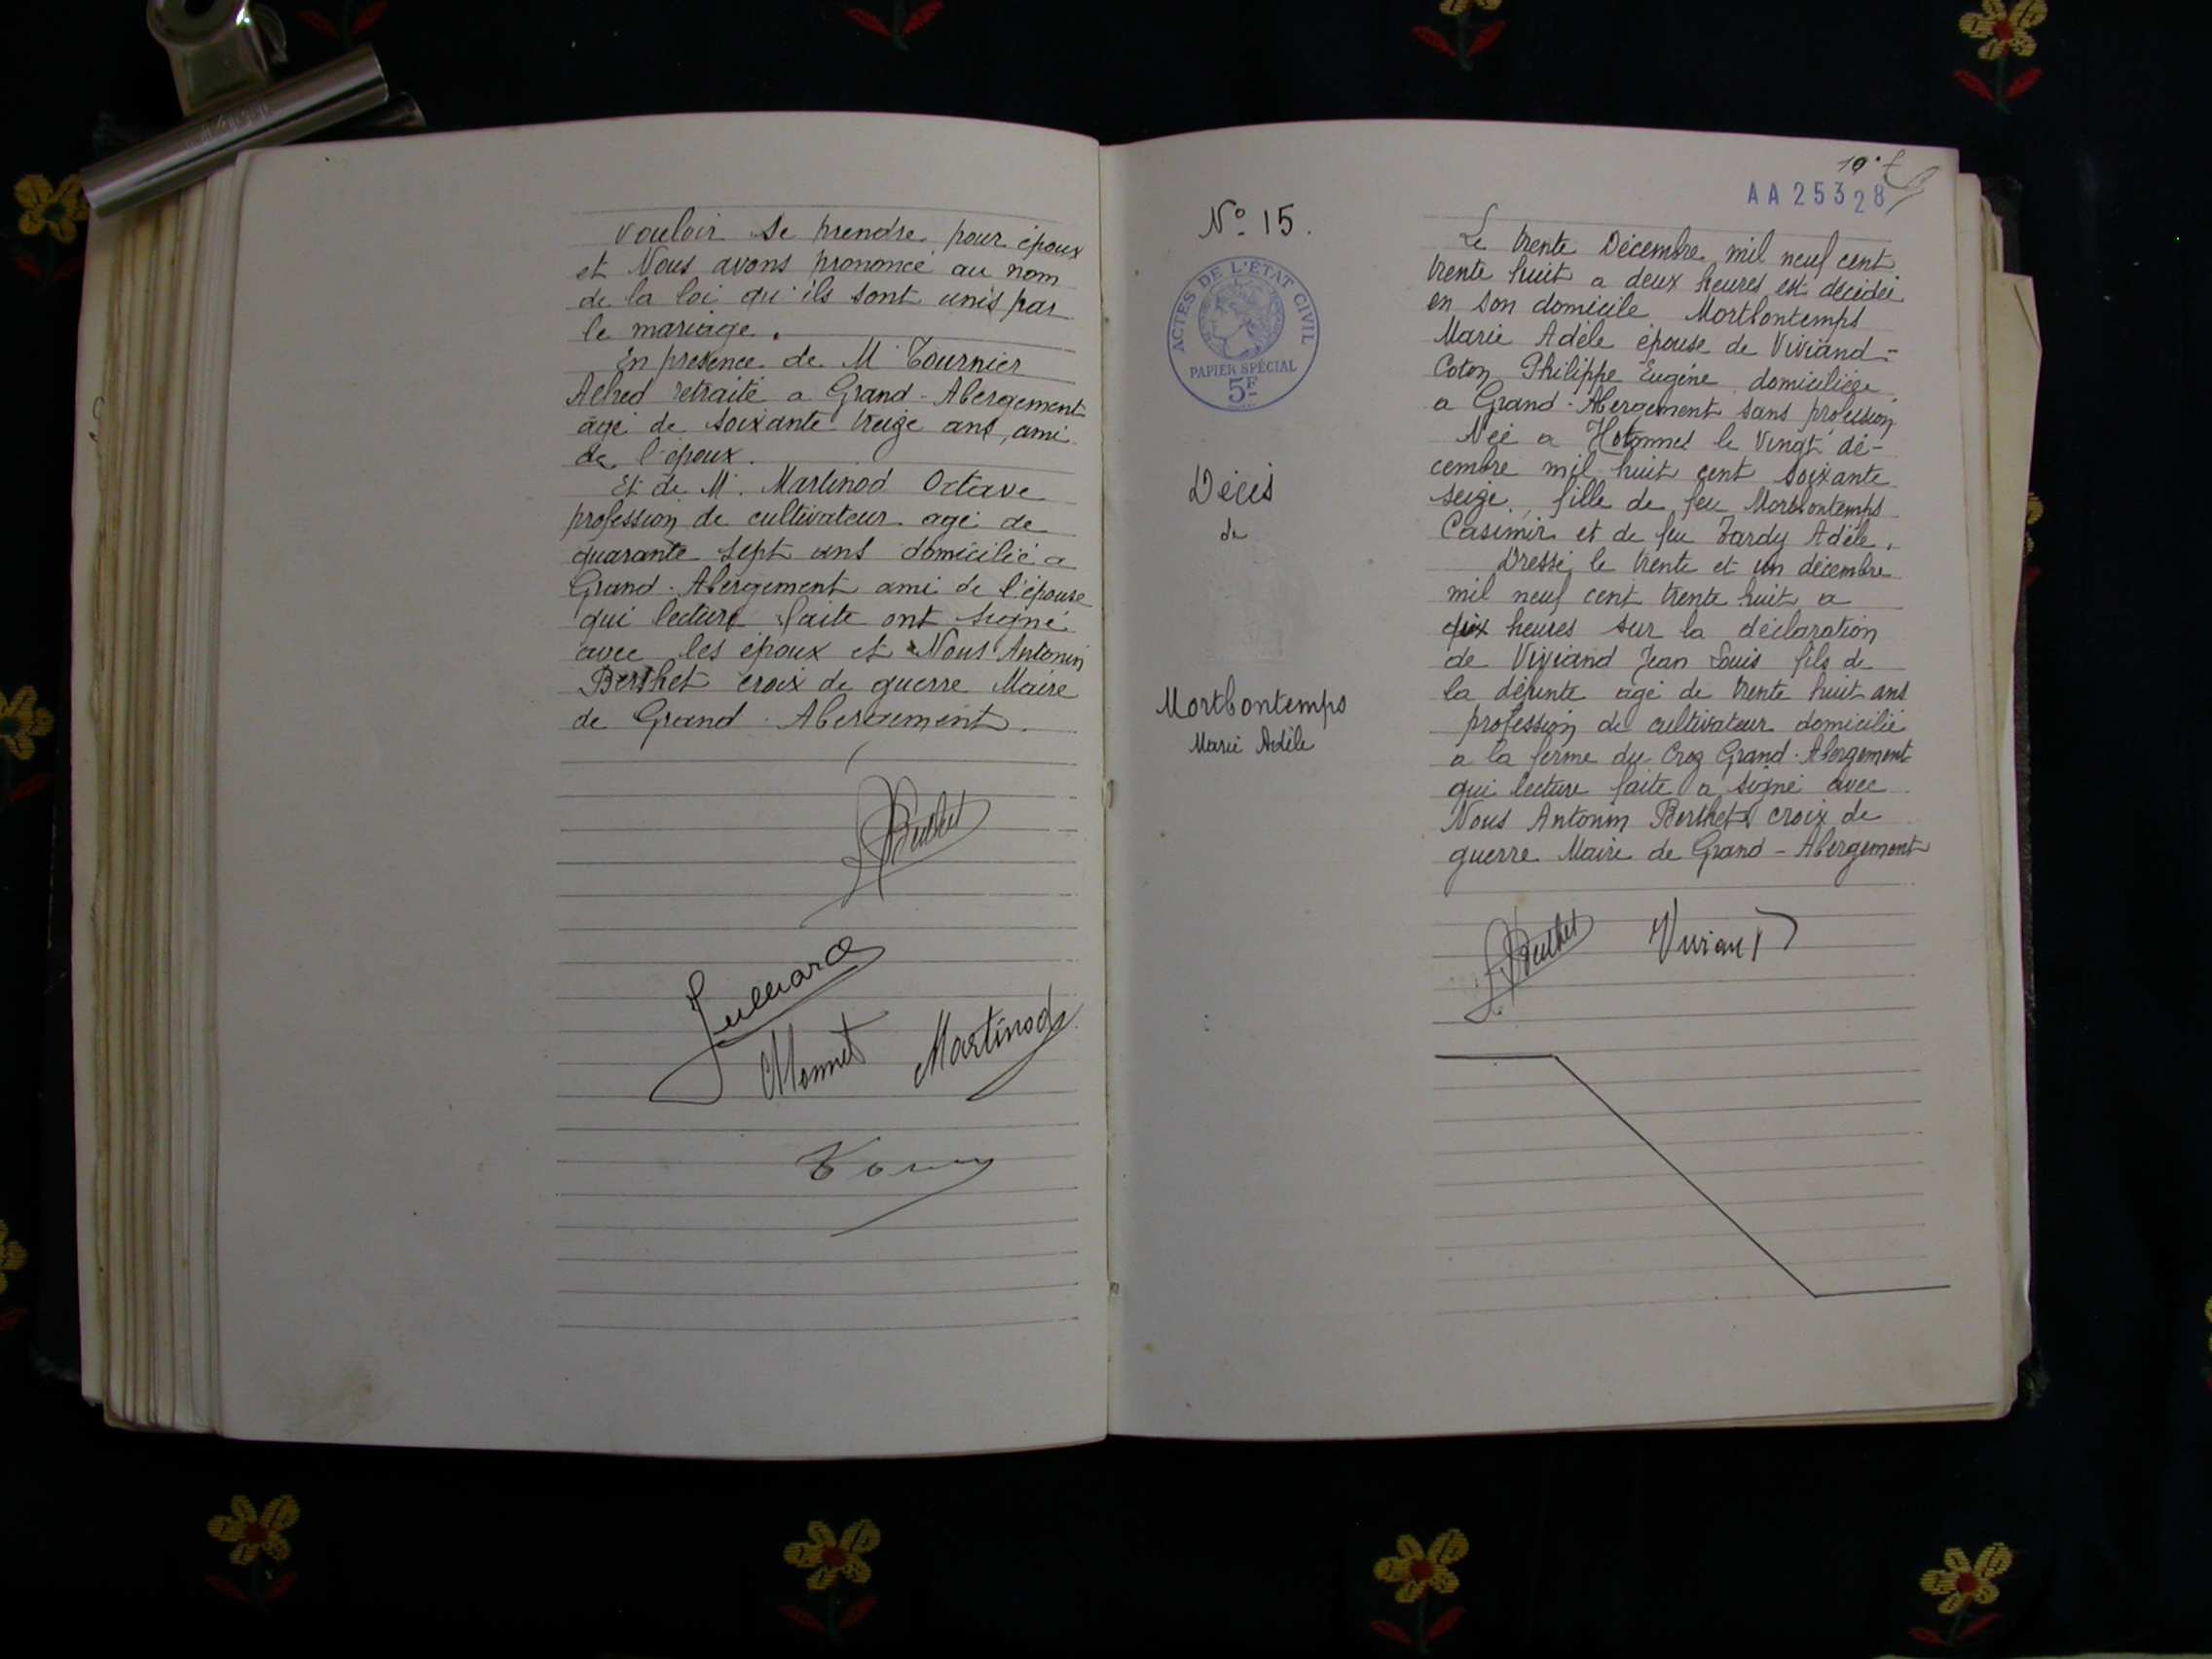 vouloir se prendre pour époux
et Nous avons prononcé au nom
de la loi qu'ils sont unis par
le mariage.
En presence de M Tournier
Alfred retraité a Grand-Abergement
agé de soixante treize ans, ami
de l'époux.
Et de M. Martinod Octave
profession de cultivateur agé de
quarante sept ans domicilié a
Grand-Abergement ami de l'épouse
qui lecture faite ont signé
avec les époux et Nous Antonin
Berthet croix de guerre Maire
de Grand-Abergement.
Berthet
Julliard
Monnet Martinod
N° 15.
ACTES DE L'ÉTAT CIVIL
PAPIER SPÉCIAL
5F
Décés
de
Mortbontemps
Marie Adèle
AA 25328
Le trente Décembre mil neuf cent
trente huit a deux heures est décédée
en son domicile Mortbontemps
Marie Adèle épouse de Viviand-
Coton Philippe Eugéne domiciliée
a Grand-Abergement sans profession
Née a Hotonnes le vingt dé-
cembre mil huit cent soixante
seize, fille de feu Mortbontemps
Casimir et de feu Tardy Adèle.
Dressé le trente et un décembre
mil neuf cent trente huit a
dix heures sur la déclaration
de Viviand Jean Louis fils de
la défunte agé de trente huit ans
profession de cultivateur domicilié
a la ferme du Croz Grand-Abergement
qui lecture faite a signé avec
Nous Antonin Berthet croix de
guerre Maire de Grand-Abergement
Berthet Viviand